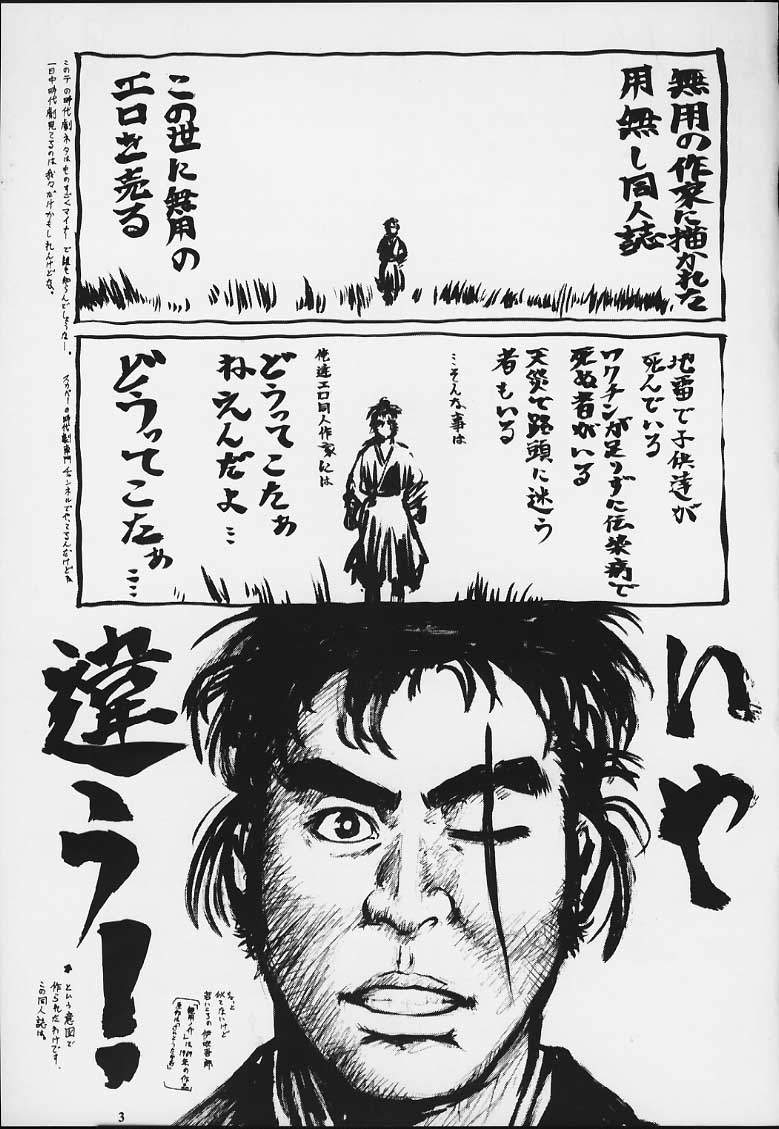 無用の作家に描かれた
用無し同人誌
この世に無用の
エロを売る
地雷で子供達が
死んでいる
ワクチンが足りずに伝染病で
死ぬ者がいる
天災で路頭に迷う
者もいる
…そんな事は
俺達エロ同人作家には
どうってこたぁ
ねえんだよ…
どうってこたぁ……
この手の時代劇ネタはものすごくマイナーで誰も知らんでしょうなー。
一日中時代劇見てるのは我々だけかもしれんけどな。
スカパーの時代劇専門チャンネルでやってるんだけどね
いや
違う!
ちっと
似てないけど
若いころの伊吹吾郎
「無用ノ介」は1969年の作品
という意図で
作られたわけです。
この同人誌は。
3